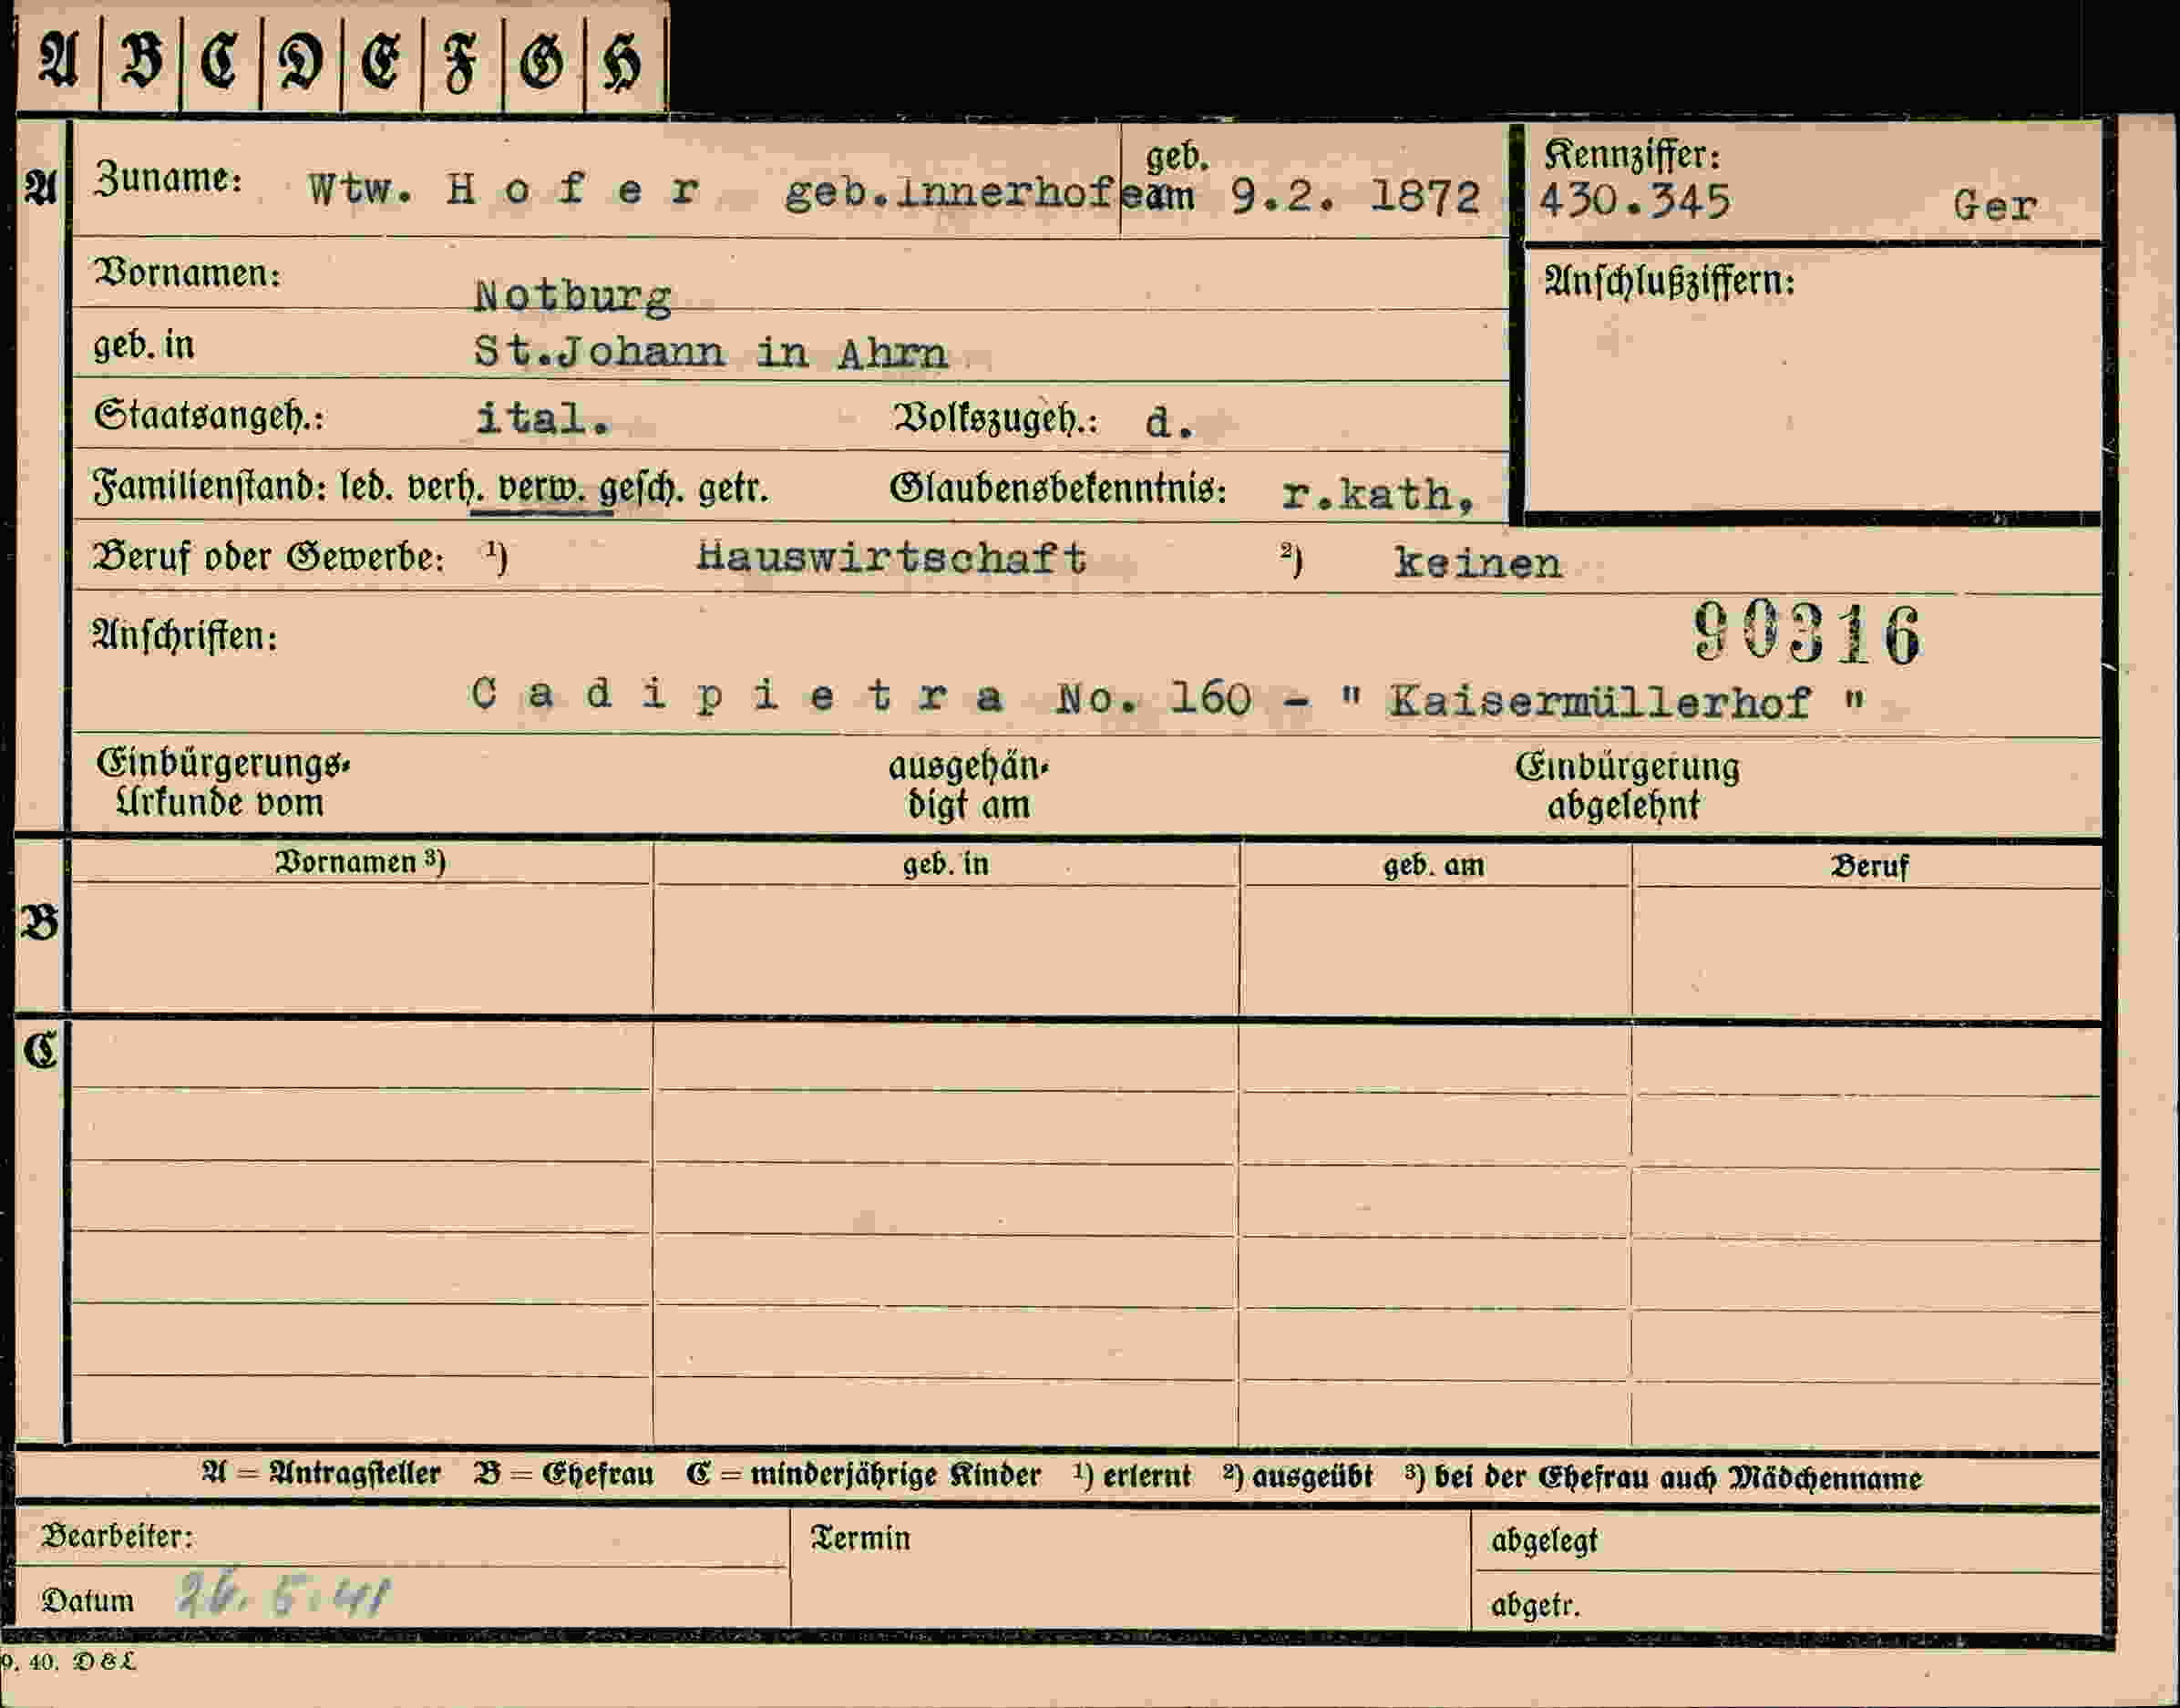 A B C D E F G H
A Zuname: Wtw. H o f e r geb.Innerhofe geb. am 9.2. 1872 Kennziffer: 430.345 Ger
Vornamen: Notburg Anschlußziffern:
geb. in St.Johann in Ahrn
Staatsangeh.: ital. Volkszugeh.: d.
Familienstand: led. verh. verw. gesch. getr. Glaubensbekenntnis: r.kath,
Beruf oder Gewerbe: ¹) Hauswirtschaft ²) keinen
Anschriften: 90316
C a d i p i e t r a No. 160 - " Kaisermüllerhof "
Einbürgerungs- ausgehän- Einbürgerung
Urkunde vom digt am abgelehnt
Vornamen ³) geb. in geb. am Beruf
B
C
A = Antragsteller B = Ehefrau C = minderjährige Kinder ¹) erlernt ²) ausgeübt ³) bei der Ehefrau auch Mädchenname
Bearbeiter: Termin abgelegt
Datum 26. 5. 41 abgetr.
9. 40. D&L